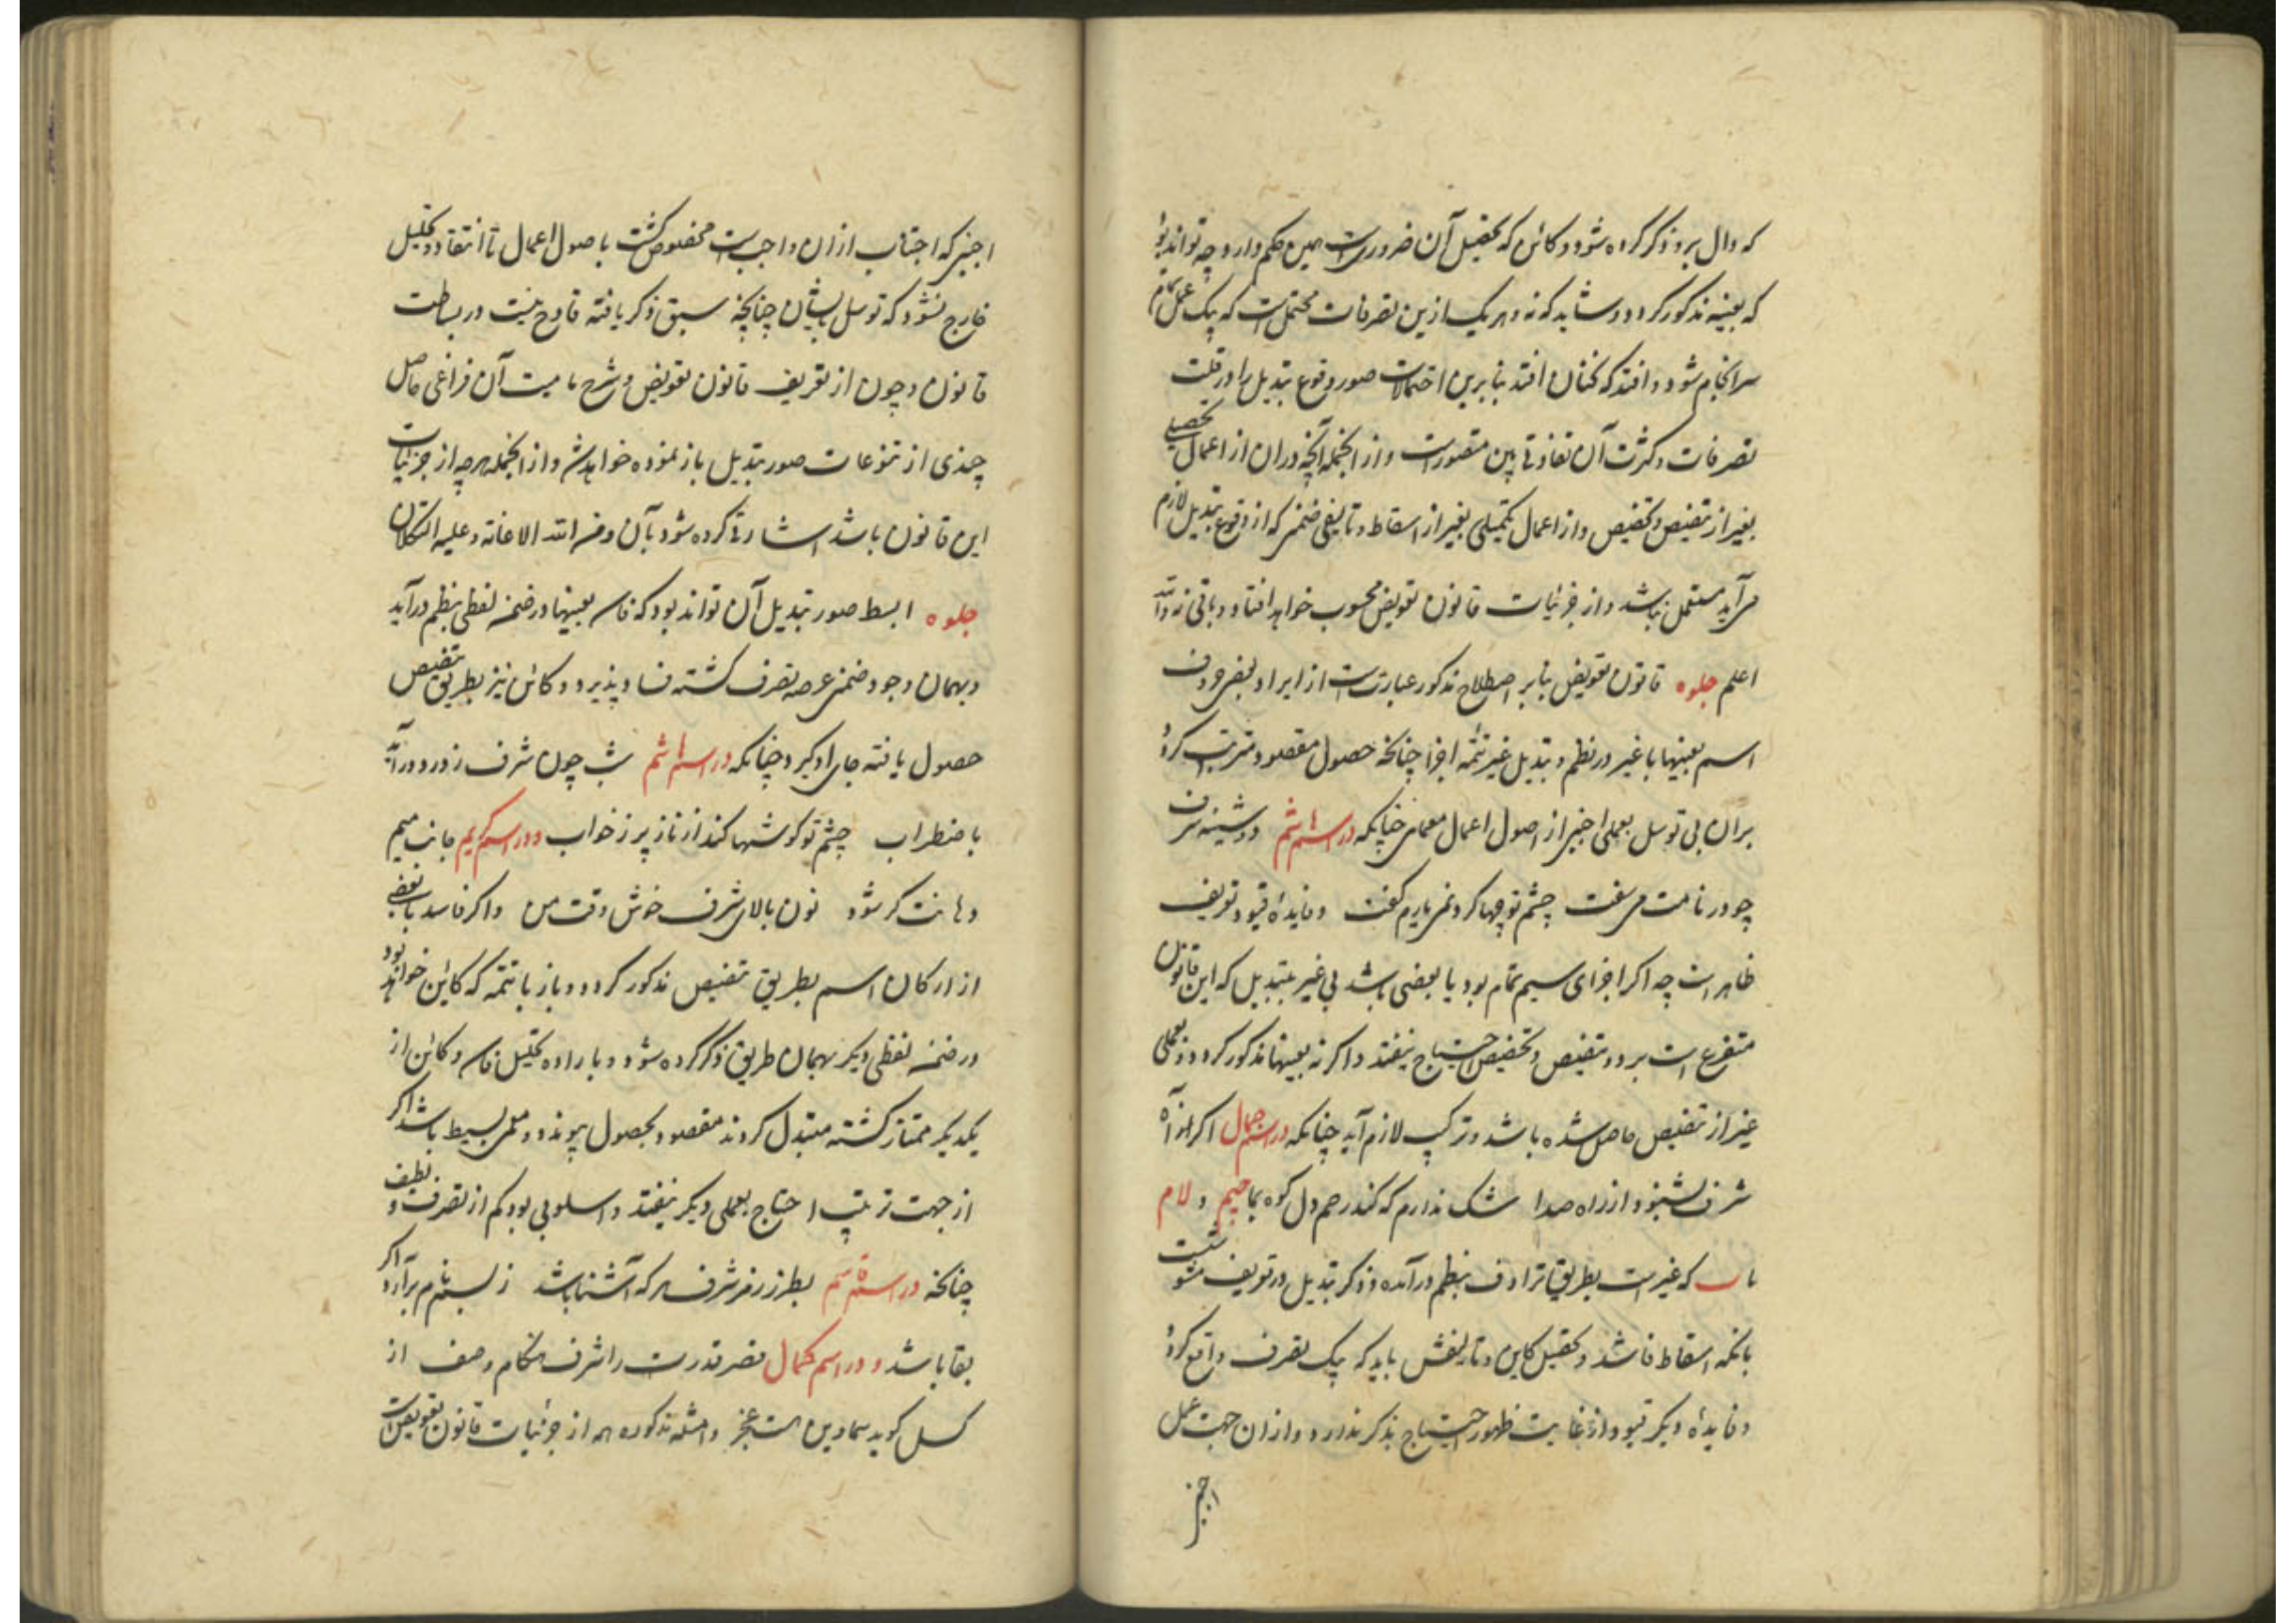 که دال برو ذکر کرده شود و کائن که تحصیل آن ضروریست همین حکم دارد چه تواند بود
که بعینه مذکور گردد و شاید که نه و هر یک ازین تصرفات محتمل است که بیک عمل تمام
سرانجام شود و افتد که نچنان افتد بنابرین احتمالات صور وقوع تبدیل را در قلت
تصرفات و کثرت آن تفاوتی بین متصورست و از انجمله آنچه در ان از اعمال تحصیلی
بغیر از تنصیص و تخصیص و از اعمال تکمیلی بغیر از اسقاط و تالیفی ضمنی که از وقوع تبدیل لازم
می آید مستعمل نباشد و از جزئیات قانون تعویض محسوب خواهد افتاد و باقی نه والله
اعلم جلوه قانون تعویض بنابر اصطلاح مذکور عبارتست از ایراد بعض حروف
اسم بعینها با غیر در نظم و تبدیل غیر بتتمه اجزا چنانچه حصول مقصود مترتب گردد
بران بی توسل بعملی اجنبی از اصول اعمال معمای چنانکه در اسم هاشم دوشینه شرف
چو در نامت می سفت چشم تو چها کرد نمی یارم گفت و فایدهٔ قیود تعریف
ظاهر است چه اگر اجزای اسم تمام بود یا بعضی باشد بی غیر بتبدیل که این قانون
متفرع است برو و تنصیص و تخصیص احتیاج نیفتد و اگر نه بعینها مذکور گردد و بعملی
غیر از تنصیص حاصل شده باشد و ترکیب لازم آید چنانکه در اسم جمال اگر او آه
شرف بشنود از راه صدا شک ندارم که کند رحم دل کوه بما جیم و لام
ما ست که غیر است بطریق ترادف بنظم درآمده و ذکر تبدیل در تعریف مثبت
بانکه اسقاط فاسد و تحصیل کاین و تالیفش باید که بیک تصرف واقع گردد
و فایدهٔ دیگر قیود از غایت ظهور احتیاج بذکر ندارد و از ان جهت عمل
اجنبی
اجنبی که اجتناب از ان واجبست مخصوص گشت باصول اعمال تا انتقاد و تحلیل
خارج نشود که توسل بایشان چنانچه سبق ذکر یافته قادح نیست در بساطت
قانون و چون از تعریف قانون تعویض و شرح ماهیت آن فراغی حاصل
چندی از تنوعات صور تبدیل باز نموده خواهد شد و از انجمله هرچه از جزئیات
این قانون باشد اشارتی کرده شود بآن و من الله الاعانه و علیه التکلان
جلوه ابسط صور تبدیل آن تواند بود که فاسد بعینها در ضمن لفظی بنظم درآید
و بهمان وجود ضمنی عرصه تصرف گشته فساد پذیرد و کائن نیز بطریق تنصیص
حصول یافته جای او گیرد چنانکه در اسم هاشم شب چون شرف ز درد درآید
باضطراب چشم تو گوشها کند از ناز پر ز خواب و در اسم کریم جانب میم
دهانت گر شود نون بالای شرف خوش وقت من و اگر فاسد با بعضی
از ارکان اسم بطریق تنصیص مذکور گردد و باز با تتمه که کاین خواهد بود
در ضمن لفظی دیگر بهمان طریق ذکر کرده شود و باراده تحلیل فاسد و کائن از
یکدیگر ممتاز گشته متبدل گردند مقصود بحصول پیوندد و عملی بسیط باشد اگر
از جهت ترتیب احتیاج بعملی دیگر نیفتد و اسلوبی بود کم از تصرف و لطیف
چنانچه در اسم قاسم بطرز رمز شرف هر که آشنا باشد ز لب بنام برآرد اگر
بقا باشد و در اسم کمال قصر قدرت را شرف هنگام وصف از
کسل گوید سما و دین است عجز و امثله مذکوره همه از جزئیات قانون تعویض است